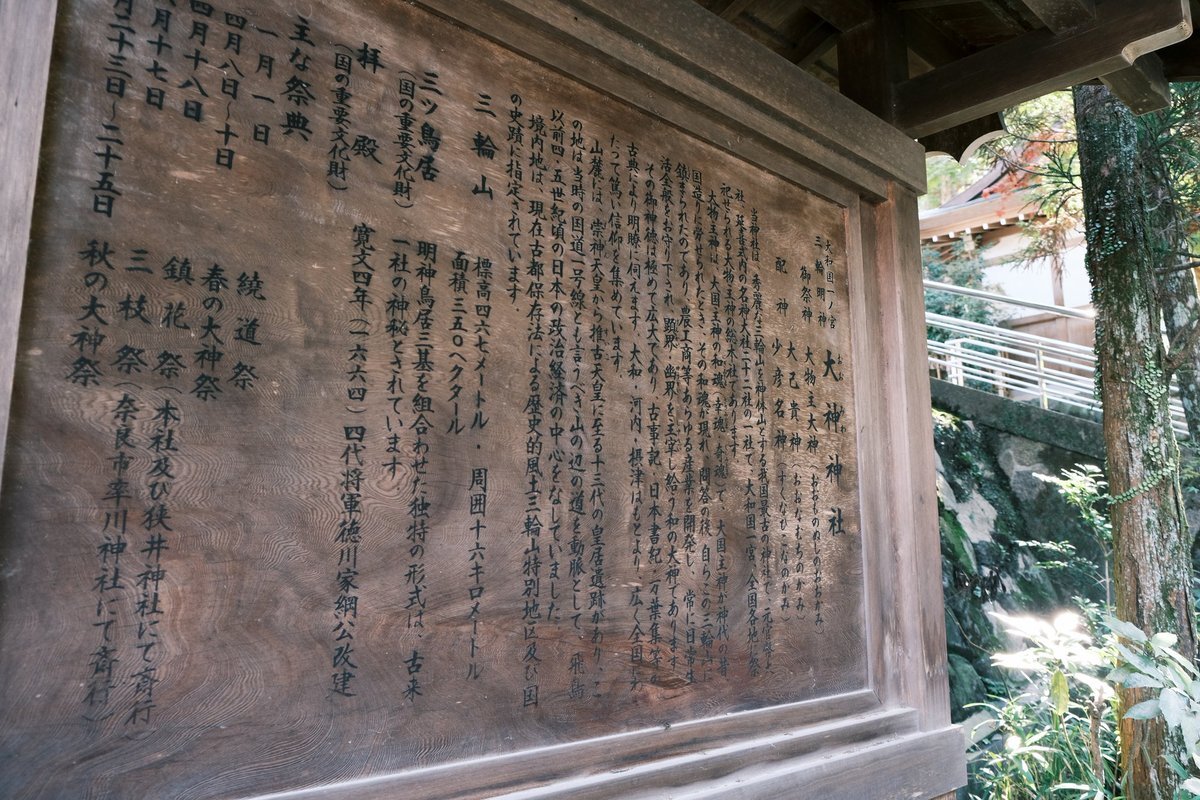 大和国一ノ宮
三輪明神
大神神社
御祭神 大物主大神(おおものぬしのおおかみ)
大己貴神(おおなむちのかみ)
配神 少彦名神(すくなひこなのかみ)
当神社は、秀麗な三輪山を神体山とする我国最古の神社で、元官幣大
社、延喜式内の名神大社二十二社の一社で、大和国一宮、全国各地に祭
祀せられる大物主神の総本社であります。
大物主神は、大国主神の和魂(幸魂・奇魂)で、大国主神が神代の昔
国造りに労せられたとき、その和魂が現れ、問答の後、自らこの三輪山に
鎮まられたのであり、農工商等、あらゆる産業を開発し、常に日常生
活全般をお守り下され、顕界・幽界を主宰し給う和の大神であります。
その御神徳は極めて広大であり、古事記、日本書紀、万葉集等の
古典により明瞭に伺えます。大和・河内・摂津はもとより、広く全国にわ
たって篤い信仰を集めています。
山麓には、崇神天皇から推古天皇に至る十三代の皇居遺跡があり、こ
の地は当時の国道一号線とも言うべき山の辺の道を動脈として、飛鳥
以前四、五世紀頃の日本の政治経済の中心をなしていました。
境内地は、現在古都保存法による歴史的風土三輪山特別地区及び国
の史蹟に指定されています。
三輪山 標高四六七メートル・周囲十六キロメートル
面積三五〇ヘクタール
三ツ鳥居 明神鳥居三基を組合わせた独特の形式は、古来
(国の重要文化財) 一社の神秘とされています
拝殿 寛文四年(一六六四)四代将軍徳川家綱公改建
(国の重要文化財)
主な祭典
一月一日 繞道祭
四月八日~十日 春の大神祭
四月十八日 鎮花祭(本社及び狭井神社にて斎行
月十七日 三枝祭(奈良市率川神社にて斎行)
月二十三日~二十五日 秋の大神祭